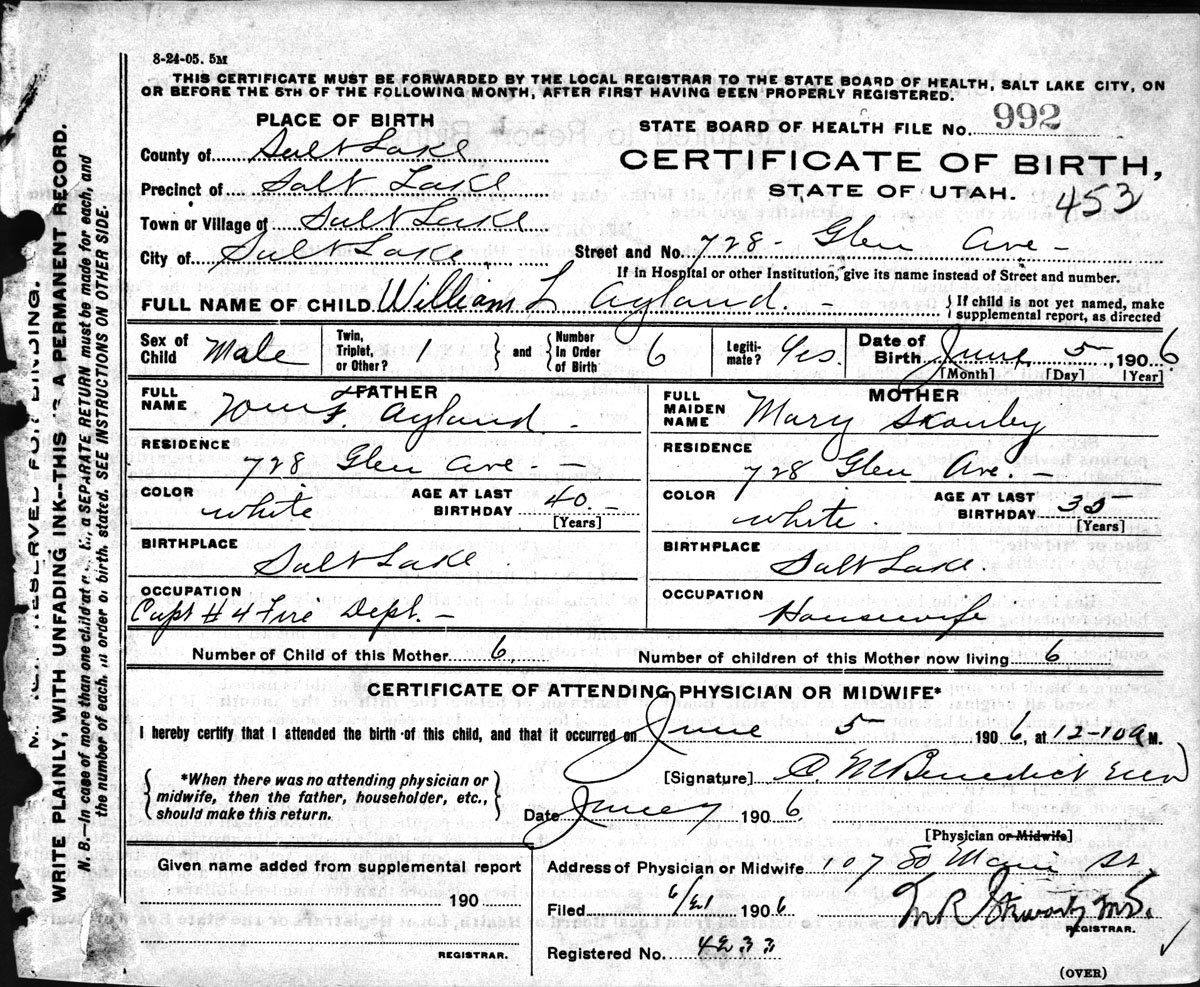 8-24-05. 5M
THIS CERTIFICATE MUST BE FORWARDED BY THE LOCAL REGISTRAR TO THE STATE BOARD OF HEALTH, SALT LAKE CITY, ON
OR BEFORE THE 5TH OF THE FOLLOWING MONTH, AFTER FIRST HAVING BEEN PROPERLY REGISTERED.
PLACE OF BIRTH
STATE BOARD OF HEALTH FILE No. 992
County of Salt Lake
CERTIFICATE OF BIRTH,
Precinct of Salt Lake
STATE OF UTAH. 453
Town or Village of Salt Lake
City of Salt Lake
Street and No. 728 - Glen Ave -
If in Hospital or other Institution, give its name instead of Street and number.
FULL NAME OF CHILD William L Ayland. -
} If child is not yet named, make
supplemental report, as directed
Sex of Child Male
Twin, Triplet, or Other? 1
and
Number In Order of Birth 6
Legiti-mate? Yes.
Date of Birth June 5, 1906
[Month] [Day] [Year]
FATHER
FULL NAME Wm F. Ayland. -
RESIDENCE
728 Glen Ave. -
COLOR white
AGE AT LAST BIRTHDAY 40. -
[Years]
BIRTHPLACE
Salt Lake.
OCCUPATION
Capt # 4 Fire Dept. -
MOTHER
FULL MAIDEN NAME Mary
RESIDENCE
728 Glen Ave. -
COLOR white
AGE AT LAST BIRTHDAY
[Years]
BIRTHPLACE
Salt Lake
OCCUPATION
Housewife
Number of Child of this Mother 6,
Number of children of this Mother now living 6
CERTIFICATE OF ATTENDING PHYSICIAN OR MIDWIFE*
I hereby certify that I attended the birth of this child, and that it occurred on June 5 1906, at 12-10 a M.
{ *When there was no attending physician or
midwife, then the father, householder, etc.,
should make this return. }
[Signature] C. M. Benedict
Date June 7 1906
[Physician or Midwife]
Given name added from supplemental report
190
REGISTRAR.
Address of Physician or Midwife 707 So Main St
Filed 6/21 1906
REGISTRAR.
Registered No. 4233
(OVER)
RESERVED FOR BINDING.
WRITE PLAINLY, WITH UNFADING INK--THIS IS A PERMANENT RECORD.
N. B.—In case of more than one child at a birth, a SEPARATE RETURN must be made for each, and
the number of each, in order of birth, stated. SEE INSTRUCTIONS ON OTHER SIDE.